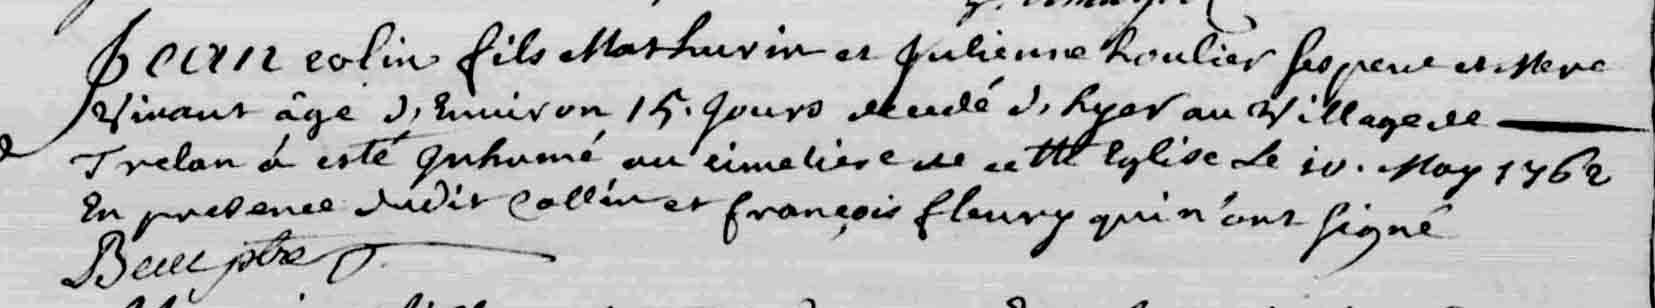 Jean colin fils Mathurin et Julienne houlier ses pere et Mere
Vivant âgé d'Environ 15. Jours decedé d'hyer au Village de
Trelan a esté Inhumé au cimetiere de cette Eglise Le 10. May 1762
En presence dudit Collin et françois fleury qui n'ont signé
ptre